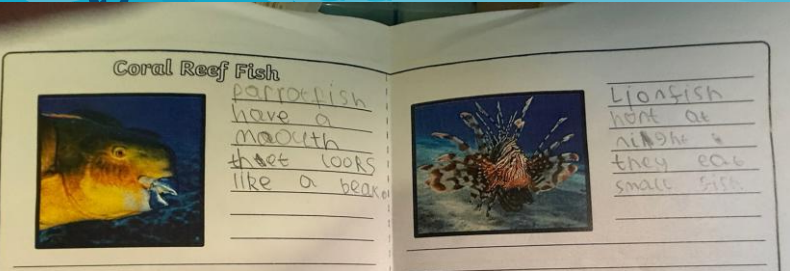 Coral Reef Fish
parrotfish
have a
maouth
thet looks
like a beak.
Lionfish
hont at
night
they eat
small fish